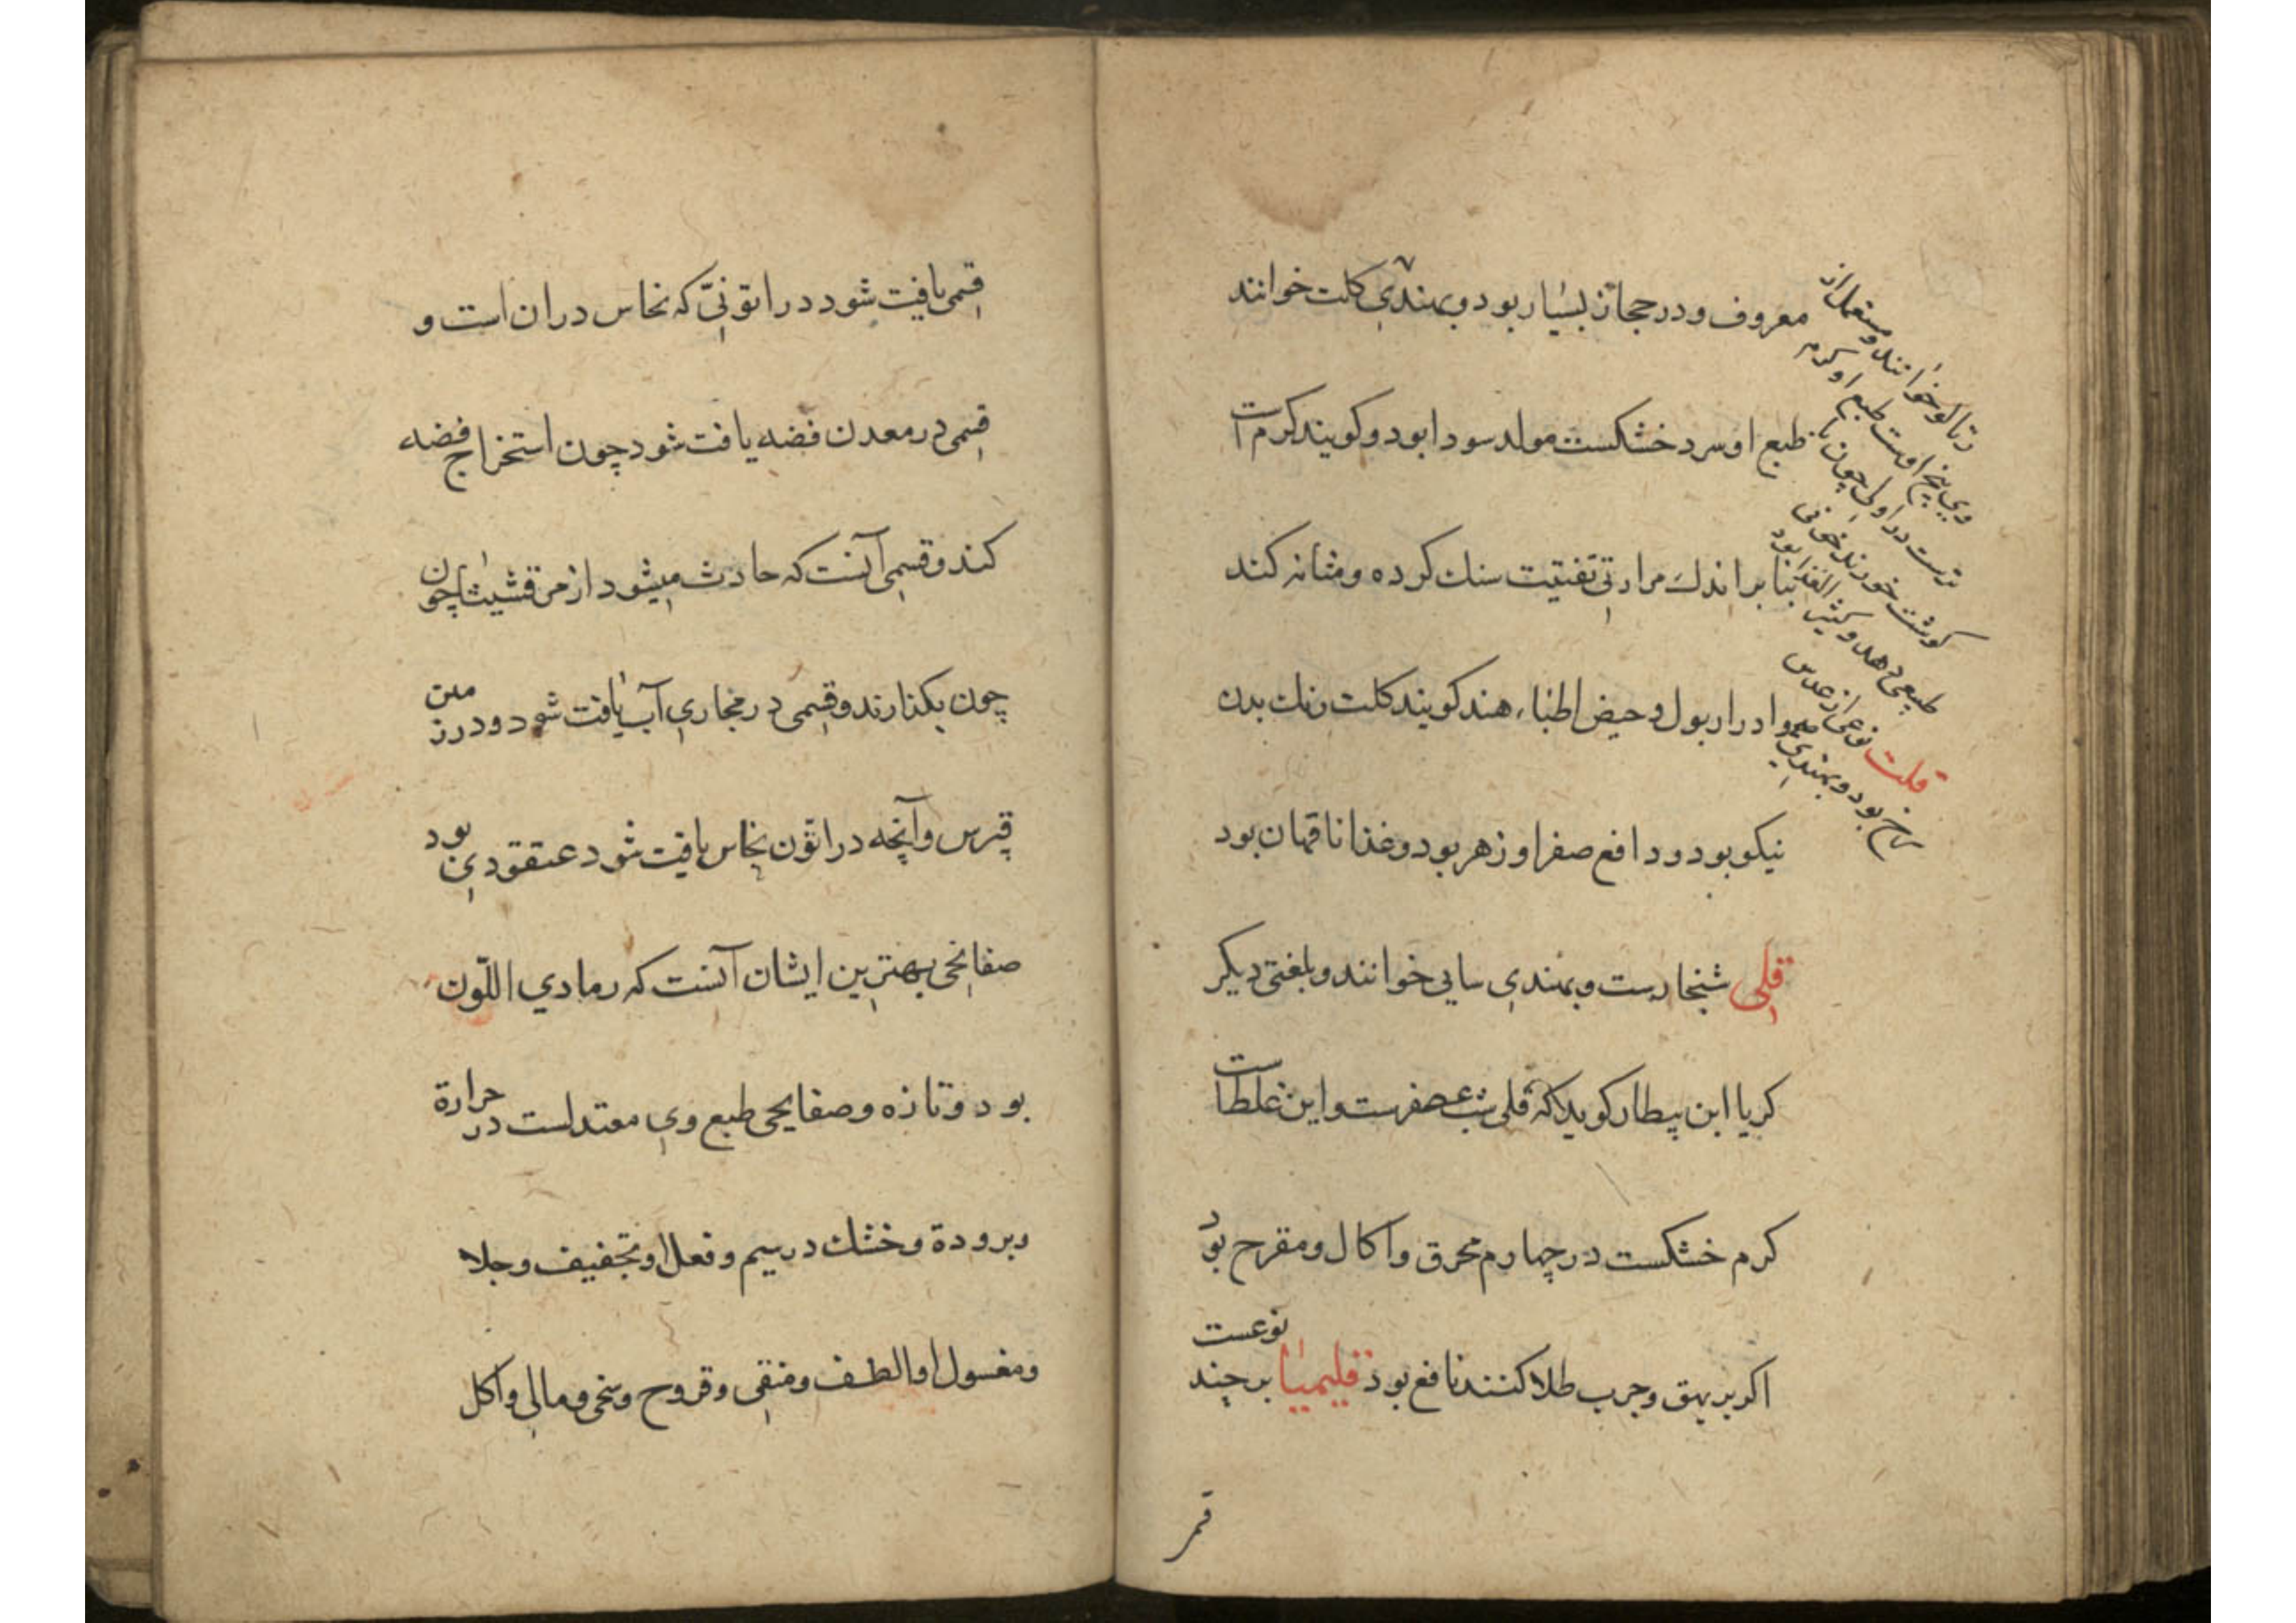 معروف و در حجاز بسیار بود و بهندی کلت خوانند
طبع او سرد خشکست مولد سودا بود و کویند کرم است
بنا بر اندك مرارتی تفتیت سنك کرده و مثانه کند
و ادرار بول و حیض اطباء هند کویند کلت رنك بدن
نیکو بود و دافع صفرا و زهر بود و غذا ناقهان بود
قلی شخارست و بهندی ساجی خوانند و بلغتی دیکر
کریا ابن بیطار کوید که قلی شب عصفرست و این غلط است
کرم خشکست در چهارم محرق و اکال و مقرح بود
اکر بر بهق و جرب طلا کنند نافع بود قلیمیا بر چند نوعست
رتالو خوانند و مستعمل از
وی بیخ اوست طبع او کرم
ترست در اول چون با
کوشت خورند خونی
طبیعی دهد و کثیر الغذا بود
قلت نوعی از عدس
سرخ بود و بهندی
قمر
قسمی یافت شود در اتونی که نحاس دران است و
قسمی در معدن فضه یافت شود چون استخراج فضه
کند و قسمی آنست که حادث میشود از مرقشیثا چون
چون بکذارند و قسمی در مجاری آب یافت شود و در زمین
قبرس و آنچه در اتون نحاس یافت شود عنقودی بود
صفایحی بهترین ایشان آنست که رمادی اللّون
بود و تازه و صفایحی طبع وی معتدلست در حرارة
و برودة و خشك در سیم و فعل او تجفیف و جلا
و مغسول او الطف و منقی و قروح وسخی و مالی و اکل